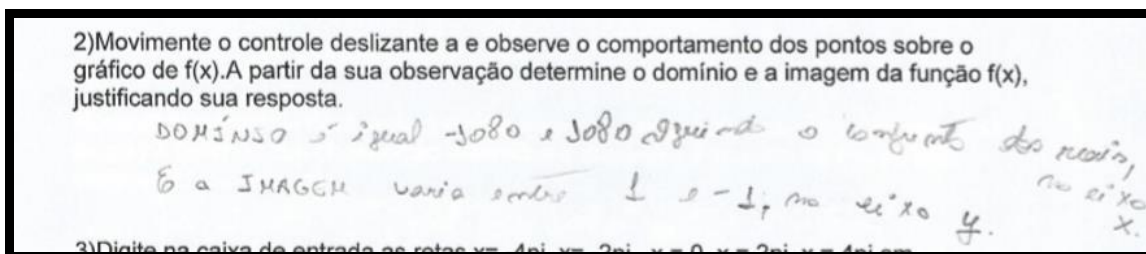 2)Movimente o controle deslizante a e observe o comportamento dos pontos sobre o
gráfico de f(x).A partir da sua observação determine o domínio e a imagem da função f(x),
justificando sua resposta.
DOMÍNIO é igual -1080 e 1080 seguindo o conjunto dos reais, no eixo x.
E a IMAGEM varia entre 1 e -1, no eixo y.
3)Digite na caixa de entrada as retas y= -4pi, x= -2pi, x = 0, x = 2pi, x = 4pi em